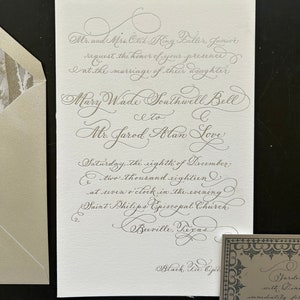 Mr. and Mrs. Otis King Tuller, Junior
request the honor of your presence
at the marriage of their daughter
Mary Wade Southwell Bell
to
Mr. Jarod Alan Love
Saturday, the eighth of December
two thousand eighteen
at seven o'clock in the evening
Saint Philip's Episcopal Church
Beeville, Texas
Black Tie